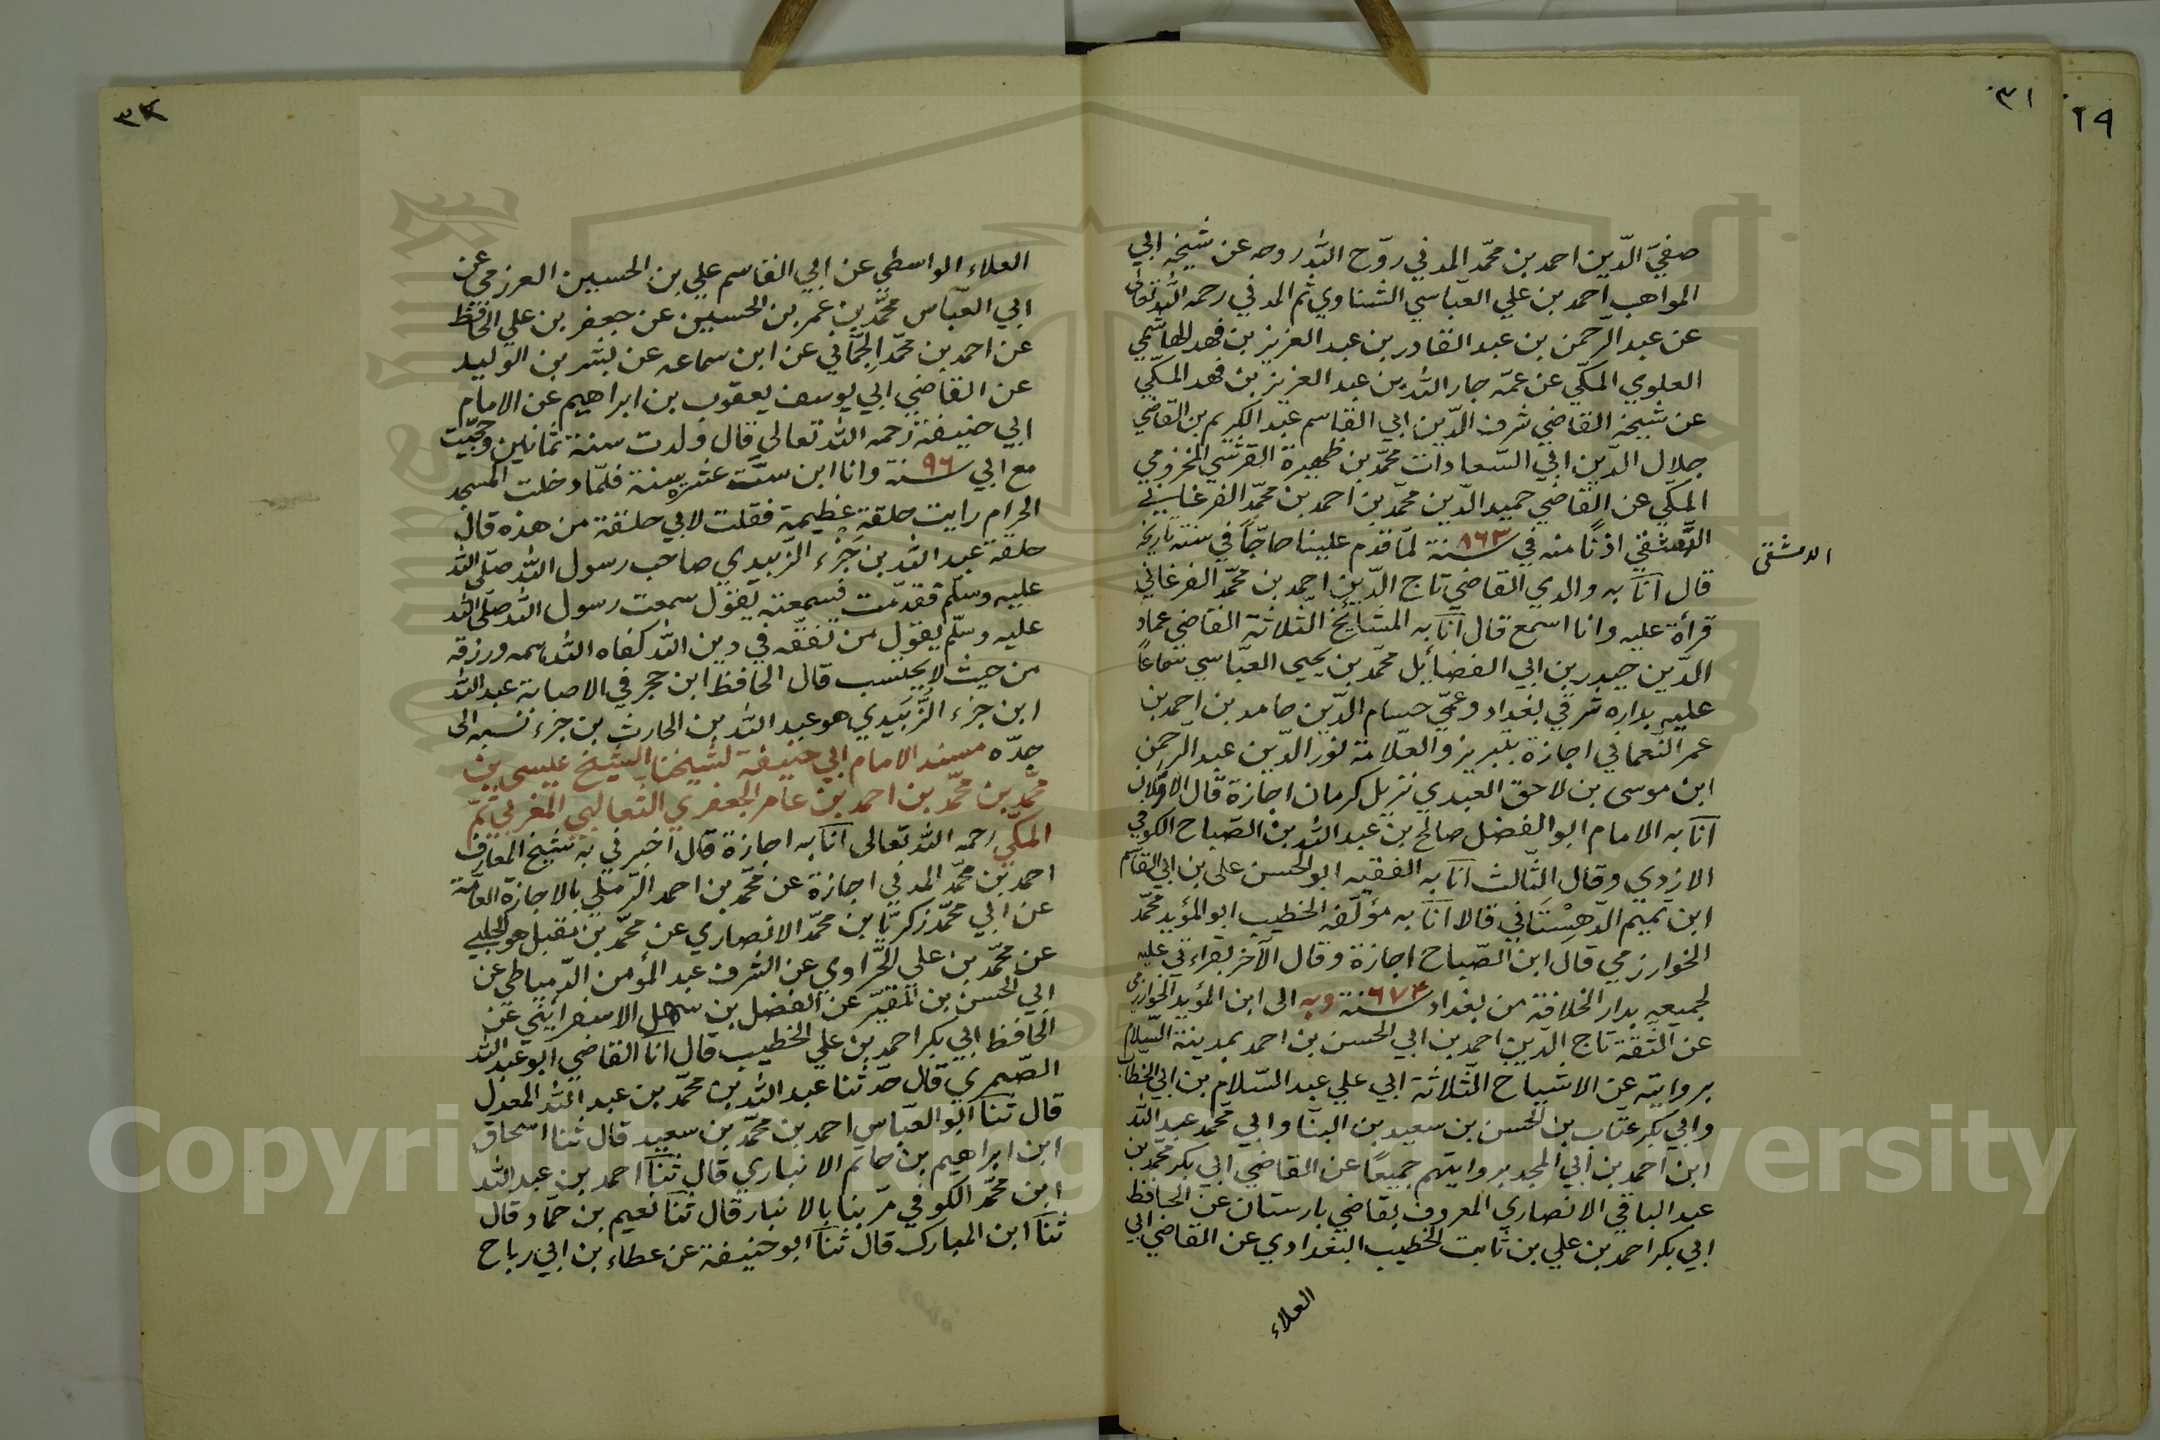 ٣١
٢٩
صفيّ الدّين احمد بن محمّد المدني روّح الله روحه عن شيخه ابي
المواهب احمد بن علي العبّاسي الشناوي ثم المدني رحمه الله تعالى
عن عبد الرحمن بن عبد القادر بن عبد العزيز بن فهد الهاشمي
العلوي المكّي عن عمّه جار الله بن عبد العزيز بن فهد المكّي
عن شيخه القاضي شرف الدّين ابي القاسم عبد الكريم بن القاضي
جلال الدّين ابي السّعادات محمّد بن ظهيرة القرشي المخزومي
المكي عن القاضي حميد الدّين محمّد بن احمد بن محمّد الفرغاني
الدمشقي اذنًا منه في سنة ٨٦٣ لمّا قدم علينا حاجّاً في سنة تاريخه
الدمشقي
قال انا به والدي القاضي تاج الدّين احمد بن محمّد الفرغاني
قرأة عليه وانا اسمع قال انا به المشايخ الثلاثة القاضي عماد
الدّين حيدر بن ابي الفضائل محمّد بن يحيى العبّاسي سماعاً
عليه بداره شرقي بغداد وعمّي حسام الدّين حامد بن احمد بن
عمر النعماني اجازة بتبريز والعلّامة نور الدّين عبد الرحمن
ابن موسى بن لاحق العبدي نزيل كرمان اجازة قال الاوّلان
انا به الامام ابو الفضل صالح بن عبد الله بن الصّباح الكوفي
الازدي وقال الثّالث انا به الفقيه ابو الحسن علي بن ابي القاسم
ابن تميم الدّهِسْتَاني قالا انا به مؤلّفه الخطيب ابو المؤيد محمّد
الخوارزمي قال ابن الصّباح اجازة وقال الآخر بقراءتي عليه
لجميعه بدار الخلافة من بغداد سنة ٦٧٤ وبه الى ابن المؤيد الخوارزمي
عن الثّقة تاج الدّين احمد بن ابي الحسن بن احمد بمدينة السّلام
بروايته عن الاشياخ الثّلاثة ابي علي عبد السّلام بن ابي الخطّاب
وابي بكر عتاب بن الحسن بن سعيد بن البنّا وابي محمّد عبد الله
ابن احمد بن ابي المجد بروايتهم جميعًا عن القاضي ابي بكر محمّد بن
عبد الباقي الانصاري المعروف بقاضي بارستان عن الحافظ
ابي بكر احمد بن علي بن ثابت الخطيب البغدادي عن القاضي ابي
العلاء
٣٢
العلاء الواسطي عن ابي القاسم علي بن الحسين العرزمي عن
ابي العبّاس محمّد بن عمر بن الحسين عن جعفر بن علي الحافظ
عن احمد بن محمّد الحِمّاني عن ابن سماعه عن بشر بن الوليد
عن القاضي ابي يوسف يعقوب بن ابراهيم عن الامام
ابي حنيفة رحمه الله تعالى قال ولدت سنة ثمانين وحججت
مع ابي سنة ٩٦ وانا ابن ستّ عشرة سنة فلمّا دخلت المسجد
الحرام رايت حلقة عظيمة فقلت لابي حلقة من هذه قال
حلقة عبد الله بن جَزْء الزّبيدي صاحب رسول الله صلّى الله
عليه وسلّم فقدّمت فسمعته يقول سمعت رسول الله صلّى الله
عليه وسلّم يقول من تفقّه في دين الله كفاه الله همه ورزقه
من حيث لا يحتسب قال الحافظ ابن حجر في الاصابة عبد الله
ابن جزء الزُّبَيدي هو عبد الله بن الحارث بن جزء نسبه الى
جدّه مسند الامام ابي حنيفة لشيخنا الشيخ عيسى بن
محمّد بن محمّد بن احمد بن عامر الجعفري الثعالبي المغربي ثمّ
المكّي رحمه الله تعالى انا به اجازة قال اخبرني به شيخ المعارف
احمد بن محمّد المدني اجازة عن محمّد بن احمد الرّملي بالاجازة العامّة
عن ابي محمّد زكريّا بن محمّد الانصاري عن محمّد بن مقبل هو الحلبي
عن محمّد بن علي الحَراوي عن الشرف عبد المؤمن الدّمياطي عن
ابي الحسن بن المقيّر عن الفضل بن سهل الاسفرائيني عن
الحافظ ابي بكر احمد بن علي الخطيب قال انا القاضي ابو عبد الله
الصّيمري قال حدّثنا عبد الله بن محمّد بن عبد الله المعدل
قال ثنا ابو العبّاس احمد بن محمّد بن سعيد قال ثنا اسحاق
ابن ابراهيم بن حاتم الانباري قال ثنا احمد بن عبد الله
ابن محمّد الكوفي مرّ بنا بالانبار قال ثنا نعيم بن حمّاد قال
ثنا ابن المبارك قال ثنا ابو حنيفة عن عطاء بن ابي رباح
Copyright © King Saud University